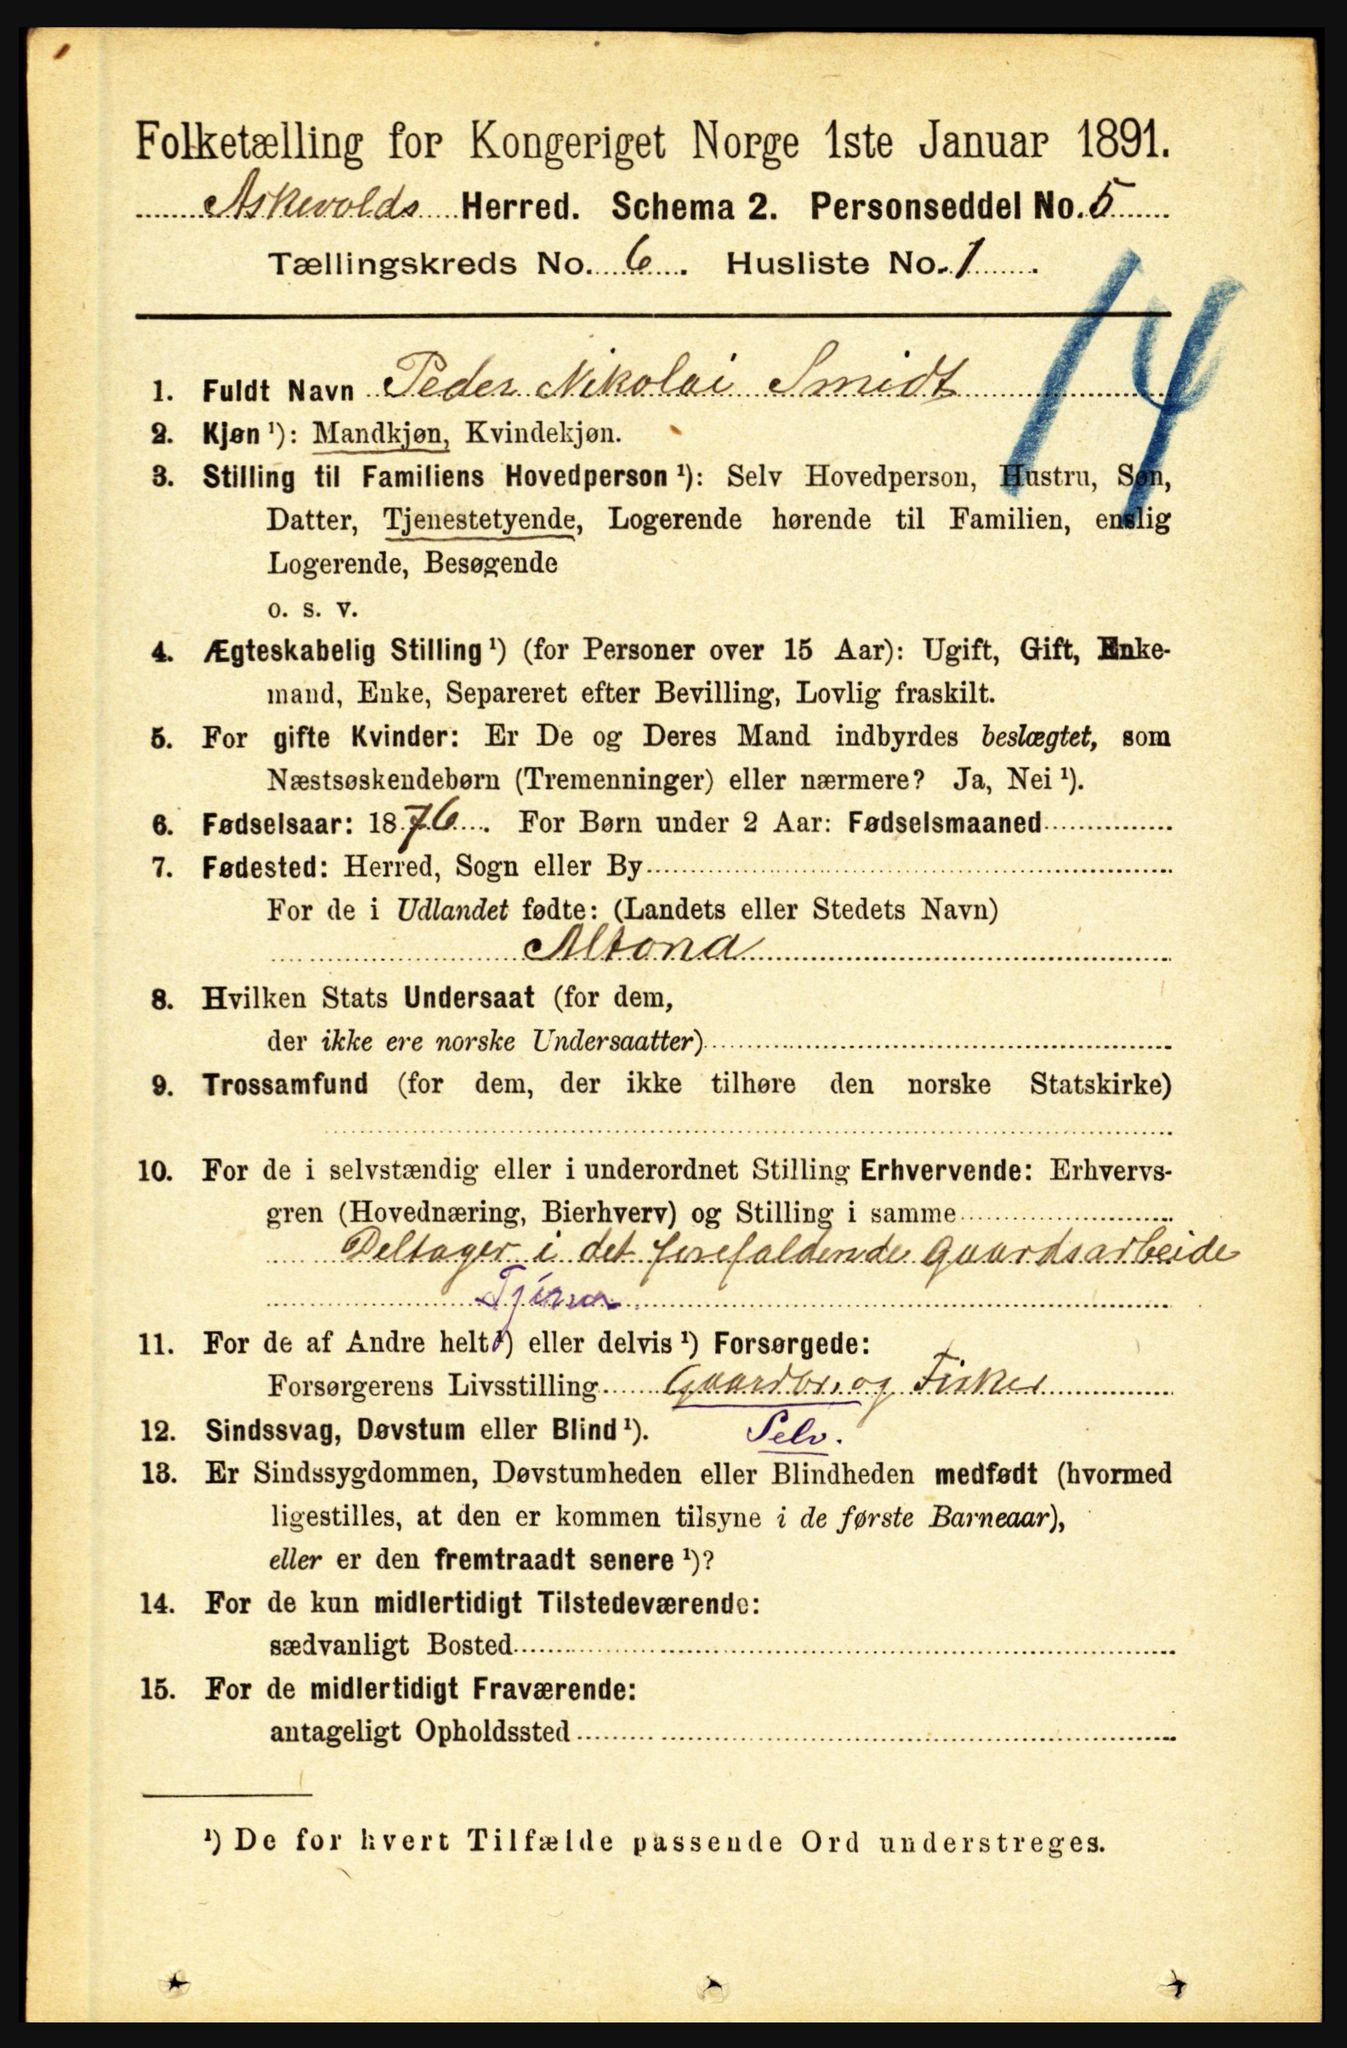 Folketælling for Kongeriget Norge 1ste Januar 1891.
Askevolds Herred. Schema 2. Personseddel No. 5
Tællingskreds No. 6. Husliste No. 1.
14
1. Fuldt Navn Peder Nikolai Smidt
2. Kjøn ¹): Mandkjøn, Kvindekjøn.
3. Stilling til Familiens Hovedperson ¹): Selv Hovedperson, Hustru, Søn,
Datter, Tjenestetyende, Logerende hørende til Familien, enslig
Logerende, Besøgende
o. s. v.
4. Ægteskabelig Stilling ¹) (for Personer over 15 Aar): Ugift, Gift, Enke-
mand, Enke, Separeret efter Bevilling, Lovlig fraskilt.
5. For gifte Kvinder: Er De og Deres Mand indbyrdes beslægtet, som
Næstsøskendebørn (Tremenninger) eller nærmere? Ja, Nei ¹).
6. Fødselsaar: 1876. For Børn under 2 Aar: Fødselsmaaned
7. Fødested: Herred, Sogn eller By
For de i Udlandet fødte: (Landets eller Stedets Navn)
Altona
8. Hvilken Stats Undersaat (for dem,
der ikke ere norske Undersaatter)
9. Trossamfund (for dem, der ikke tilhøre den norske Statskirke)
10. For de i selvstændig eller i underordnet Stilling Erhvervende: Erhvervs-
gren (Hovednæring, Bierhverv) og Stilling i samme
Deltager i det forefaldende Gaardsarbeide
11. For de af Andre helt ¹) eller delvis ¹) Forsørgede:
Forsørgerens Livsstilling Gaardbr. og Fisker
12. Sindssvag, Døvstum eller Blind ¹). Selv.
13. Er Sindssygdommen, Døvstumheden eller Blindheden medfødt (hvormed
ligestilles, at den er kommen tilsyne i de første Barneaar),
eller er den fremtraadt senere ¹)?
14. For de kun midlertidigt Tilstedeværende:
sædvanligt Bosted
15. For de midlertidigt Fraværende:
antageligt Opholdssted
¹) De for hvert Tilfælde passende Ord understreges.